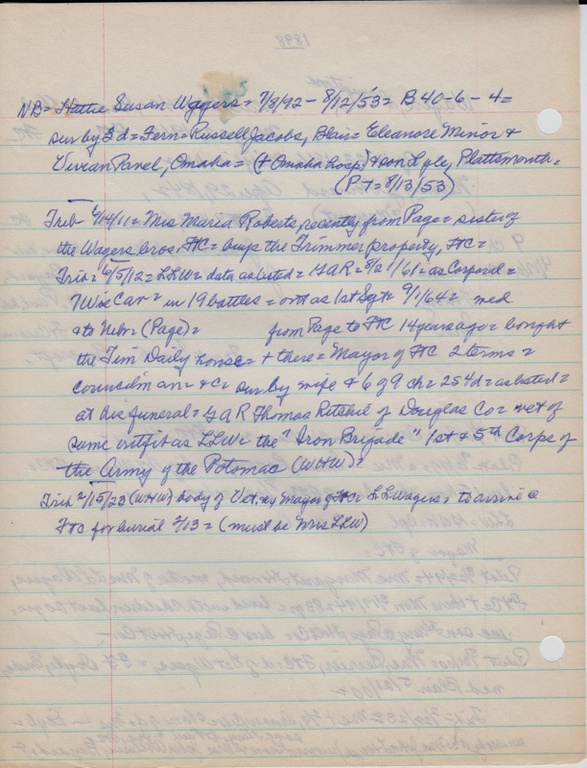 1898
NB = Hattie Susan Wagers = 7/8/92 - 8/12/53 = B 40-6-4 =
sur by 3 d = Fern = Russell Jacobs, Blair = Eleanore Minor &
Vivian Panel, Omaha = (+ Omaha hosp) & son Lyle, Plattsmouth.
(PT = 8/13/53)
Trib 4/14/11 = Mrs Maria Roberts, recently from Page = sister of
the Wagers bros, FtC = buys the Trimmer property, FtC =
Trib = 6/5/12 = LLW = data as listed = GAR = 8/21/61 = as Corporal =
7 Wis Cav = in 19 battles = out as 1st Sgt = 9/1/64 = med
to Nebr (Page) = from Page to FtC 14 years ago = bought
the Jim Daily house = + there = Mayor of FtC 2 terms =
councilman = &c = sur by wife & 6 of 9 ch = 2s 4d = as listed =
at his funeral = GAR Thomas Ritchie of Douglas Co = vet of
same outfit as LLW = the "Iron Brigade" 1st & 5th Corps of
the Army of the Potomac (WHW) =
Trib 2/15/23 (WHW) body of Vet, ex Mayor of Ftc = LL Wagers = to arrive @
Ftc for burial 2/13 = (must be Mrs LLW)